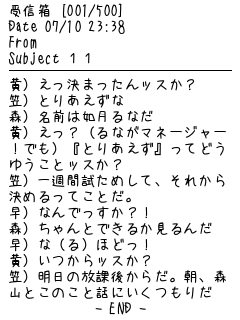 受信箱 [001/500]
Date 07/10 23:38
From
Subject 11
黄）えっ決まったんッスか？
笠）とりあえずな
森）名前は如月るなだ
黄）えっ？（るながマネージャー
！でも）『とりあえず』ってどう
ゆうことッスか？
笠）一週間試ためして、それから
決めるってことだ。
早）なんでっすか？！
森）ちゃんとできるか見るんだ
早）な（る）ほどっ！
黄）いつからッスか？
笠）明日の放課後からだ。朝、森
山とこのこと話にいくつもりだ
- END -